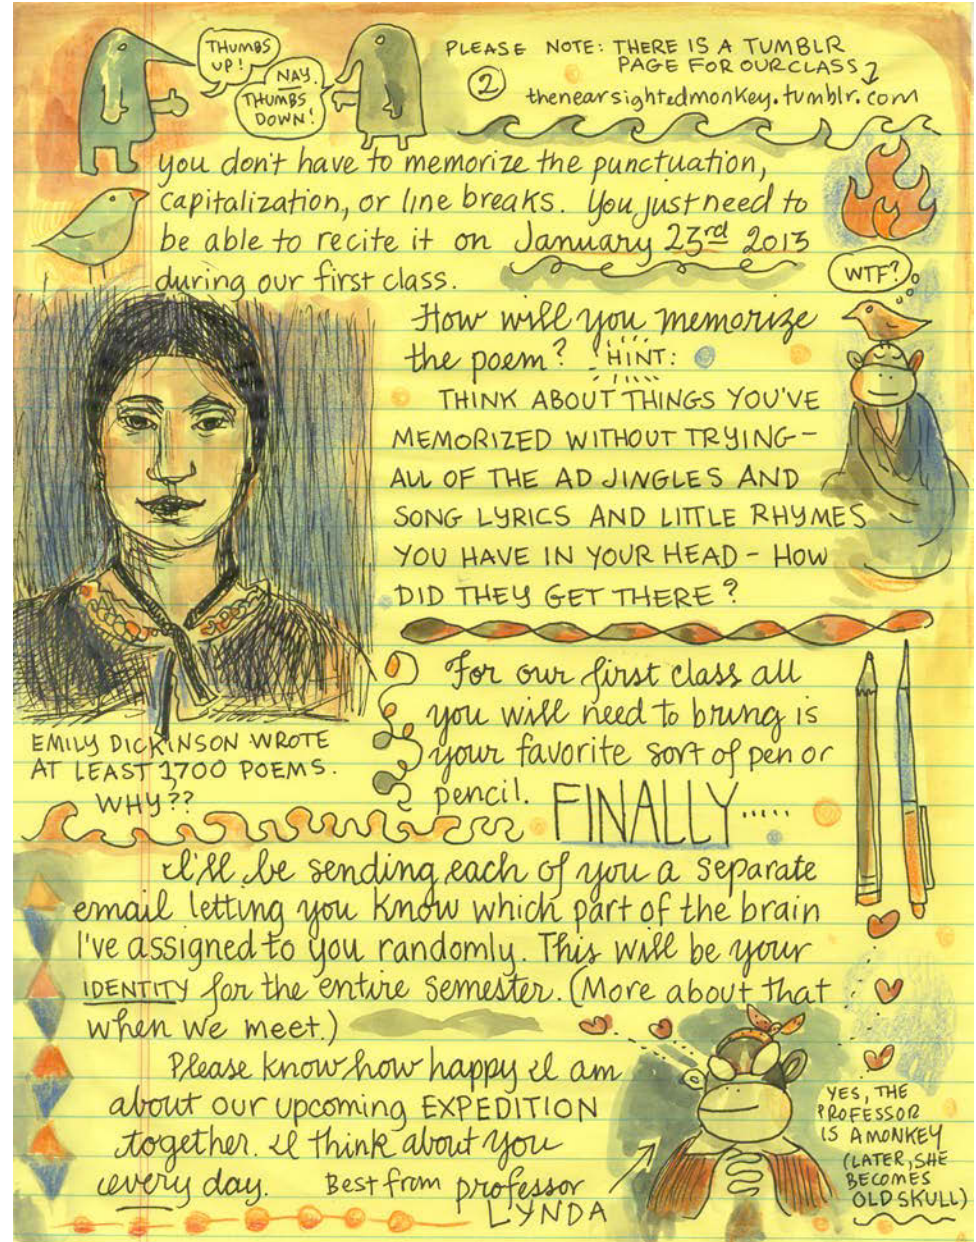 THUMBS
UP!
NAY.
THUMBS
DOWN!
PLEASE NOTE: THERE IS A TUMBLR
PAGE FOR OUR CLASS
2
thenearsightedmonkey.tumblr.com
you don't have to memorize the punctuation,
capitalization, or line breaks. You just need to
be able to recite it on January 23rd 2013
during our first class.
WTF?
How will you memorize
the poem? HINT:
THINK ABOUT THINGS YOU'VE
MEMORIZED WITHOUT TRYING—
ALL OF THE AD JINGLES AND
SONG LYRICS AND LITTLE RHYMES
YOU HAVE IN YOUR HEAD – HOW
DID THEY GET THERE?
EMILY DICKINSON WROTE
AT LEAST 1700 POEMS.
WHY??
For our first class all
you will need to bring is
your favorite sort of pen or
pencil. FINALLY.....
I'll be sending each of you a separate
email letting you know which part of the brain
I've assigned to you randomly. This will be your
IDENTITY for the entire semester. (More about that
when we meet.)
Please know how happy I am
about our upcoming EXPEDITION
together. I think about you
every day. Best from professor
LYNDA
YES, THE
PROFESSOR
IS A MONKEY
(LATER, SHE
BECOMES
OLD SKULL)